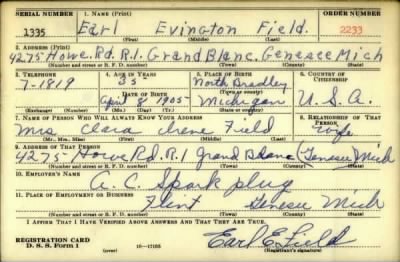 SERIAL NUMBER 1. NAME (Print) ORDER NUMBER
1335 Earl Evington Field. 2233
(First) (Middle) (Last)
2. ADDRESS (Print)
4275 Howe. Rd. R.1. Grand Blanc. Genesee Mich
(Number and street or R. F. D. number) (Town) (County) (State)
3. TELEPHONE 4. AGE IN YEARS 5. PLACE OF BIRTH 6. COUNTRY OF CITIZENSHIP
7-1819 35 North Bradley
DATE OF BIRTH
April 8 1905 Michigan U.S.A.
(Exchange) (Number) (Mo.) (Day) (Yr.) (State or country)
7. NAME OF PERSON WHO WILL ALWAYS KNOW YOUR ADDRESS 8. RELATIONSHIP OF THAT PERSON
Mrs. Clara Irene Field Wife
(Mr., Mrs., Miss) (First) (Middle) (Last)
9. ADDRESS OF THAT PERSON
4275 Howe Rd. R.1 Grand Blanc (Genesee) Mich
(Number and street or R. F. D. number) (Town) (County) (State)
10. EMPLOYER'S NAME
A.C. Spark plug
11. PLACE OF EMPLOYMENT OR BUSINESS
Flint Genesee Mich
(Number and street or R. F. D. number) (Town) (County) (State)
I AFFIRM THAT I HAVE VERIFIED ABOVE ANSWERS AND THAT THEY ARE TRUE.
REGISTRATION CARD
D. S. S. Form 1 16-17105 Earl E. Field
(over) (Registrant's signature)